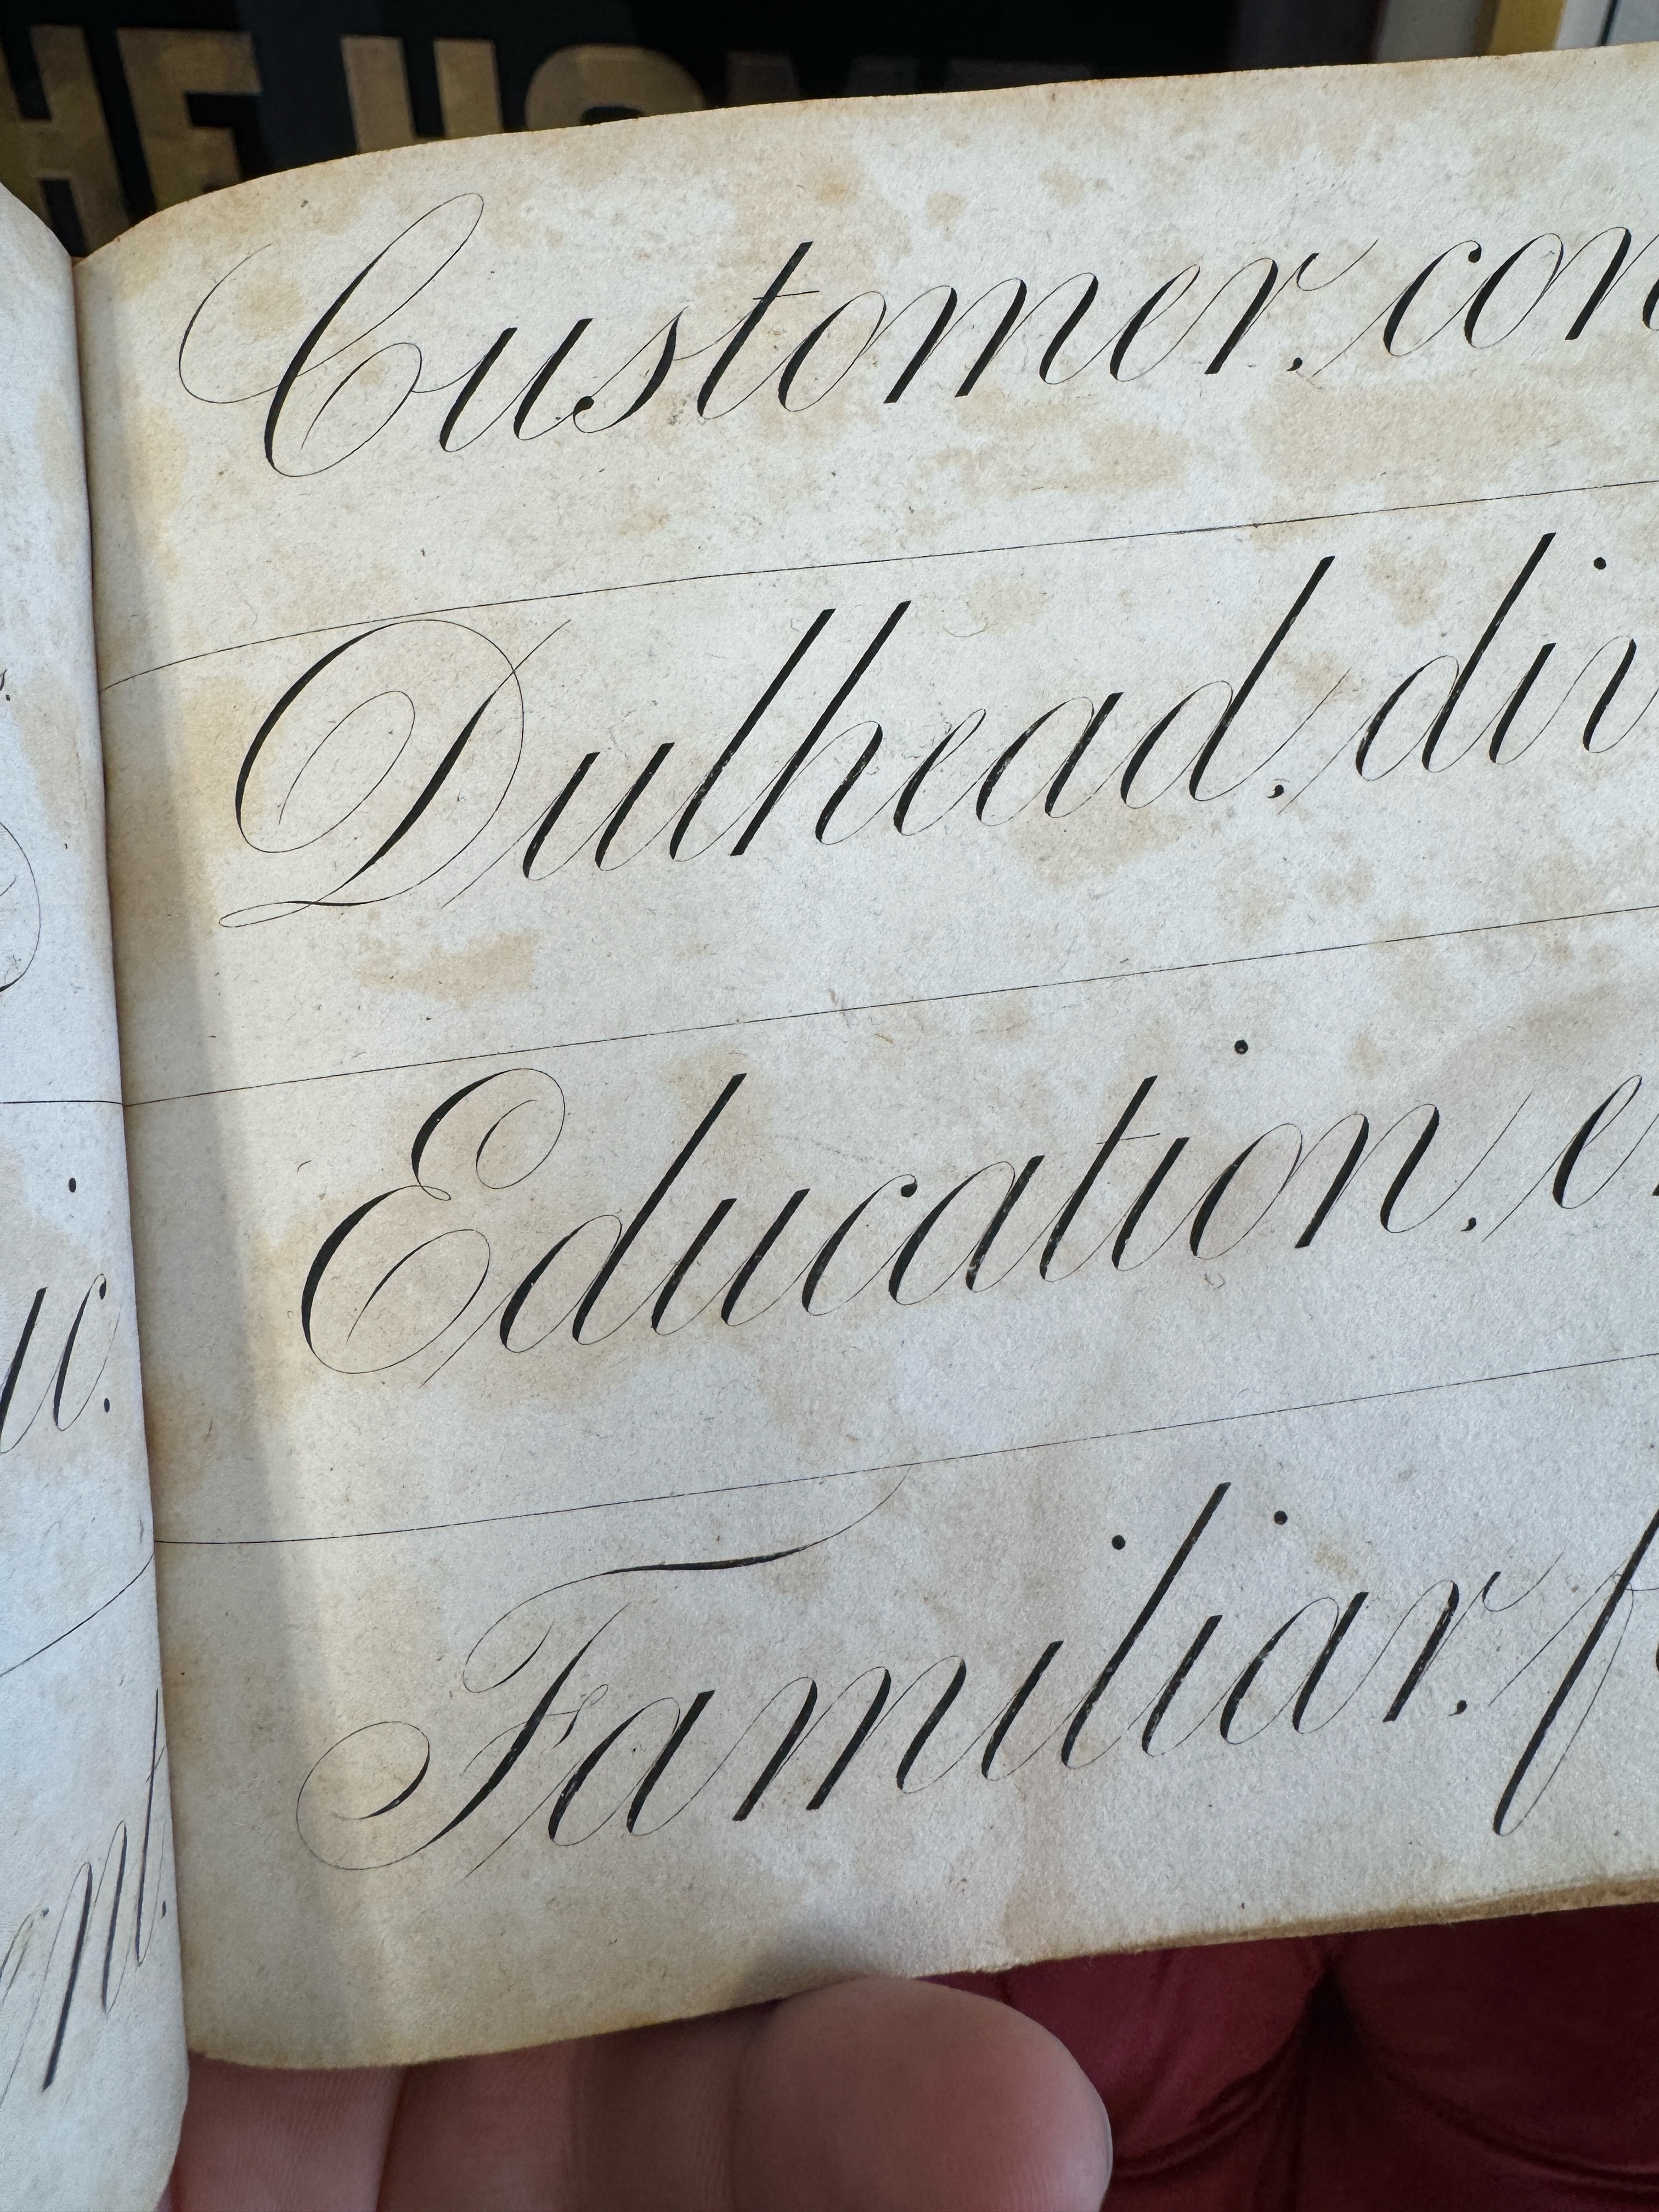 HE HOME
Customer. con
Dulhead. div
Education. e
Familiar. f